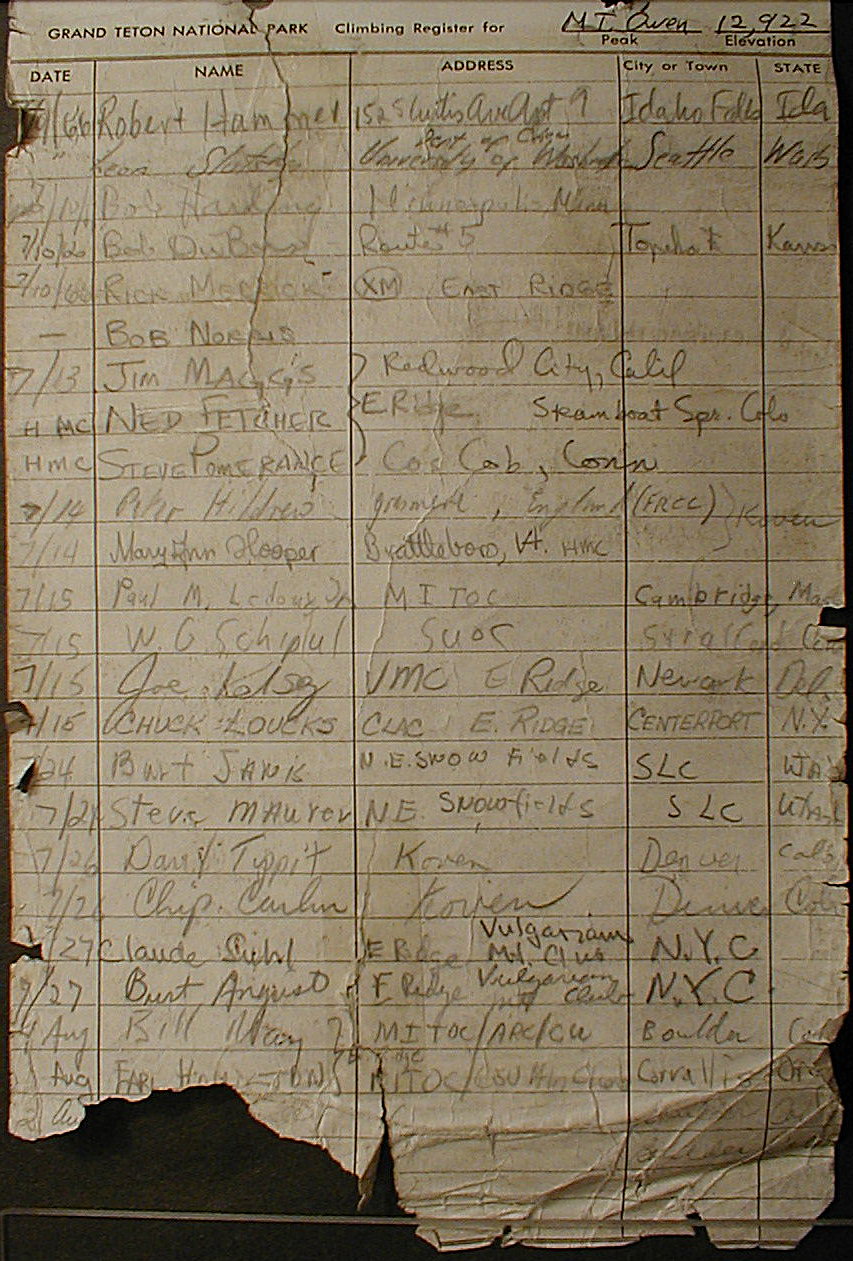 GRAND TETON NATIONAL PARK Climbing Register for MT Owen 12,922
Peak Elevation
DATE NAME ADDRESS City or Town STATE
/66 Robert Hammer 152 S Curtis Ave Apt 9 Idaho Falls Ida
" Leon University of Seattle Wash
Bob Harding Minneapolis, Minn
7/10/66 Bob DuBois Route #5 Topeka Kans
7/10/66 RICK MEDRICK XM EAST RIDGE
— BOB NORRIS
7/13 JIM MAGGS Redwood City, Calif
HMC NED FETCHER E Ridge Steamboat Spr. Colo
HMC STEVE POMERANCE Cos Cob, Conn
7/14 Peter Hildrew, England (FRCC) Koven
7/14 Mary Ann Hooper Brattleboro, Vt. HMC
7/15 Paul M. Ledoux Jr. MITOC Cambridge, Mass
7/15 W. G. Schipul SUOC Conn
7/15 Joe Kelsey VMC E Ridge Newark Del.
7/15 CHUCK LOUCKS CLAC E. RIDGE CENTERPORT N.Y.
7/24 Burt JANIS N.E. SNOW Fields SLC
7/24 Steve MAURER N.E. SNOWfields SLC Utah
7/26 Koven Denver Colo
7/26 Chip Koven Denver Colo
7/27 Claude Suhl E Ridge Vulgarian Mt. Club N.Y.C
7/27 Burt Angrist E Ridge Vulgarian Mt Club N.Y.C.
Aug Bill MITOC/APC/CU Boulder
Aug EARL MITOC/OSU Mtn Club Corvallis Ore